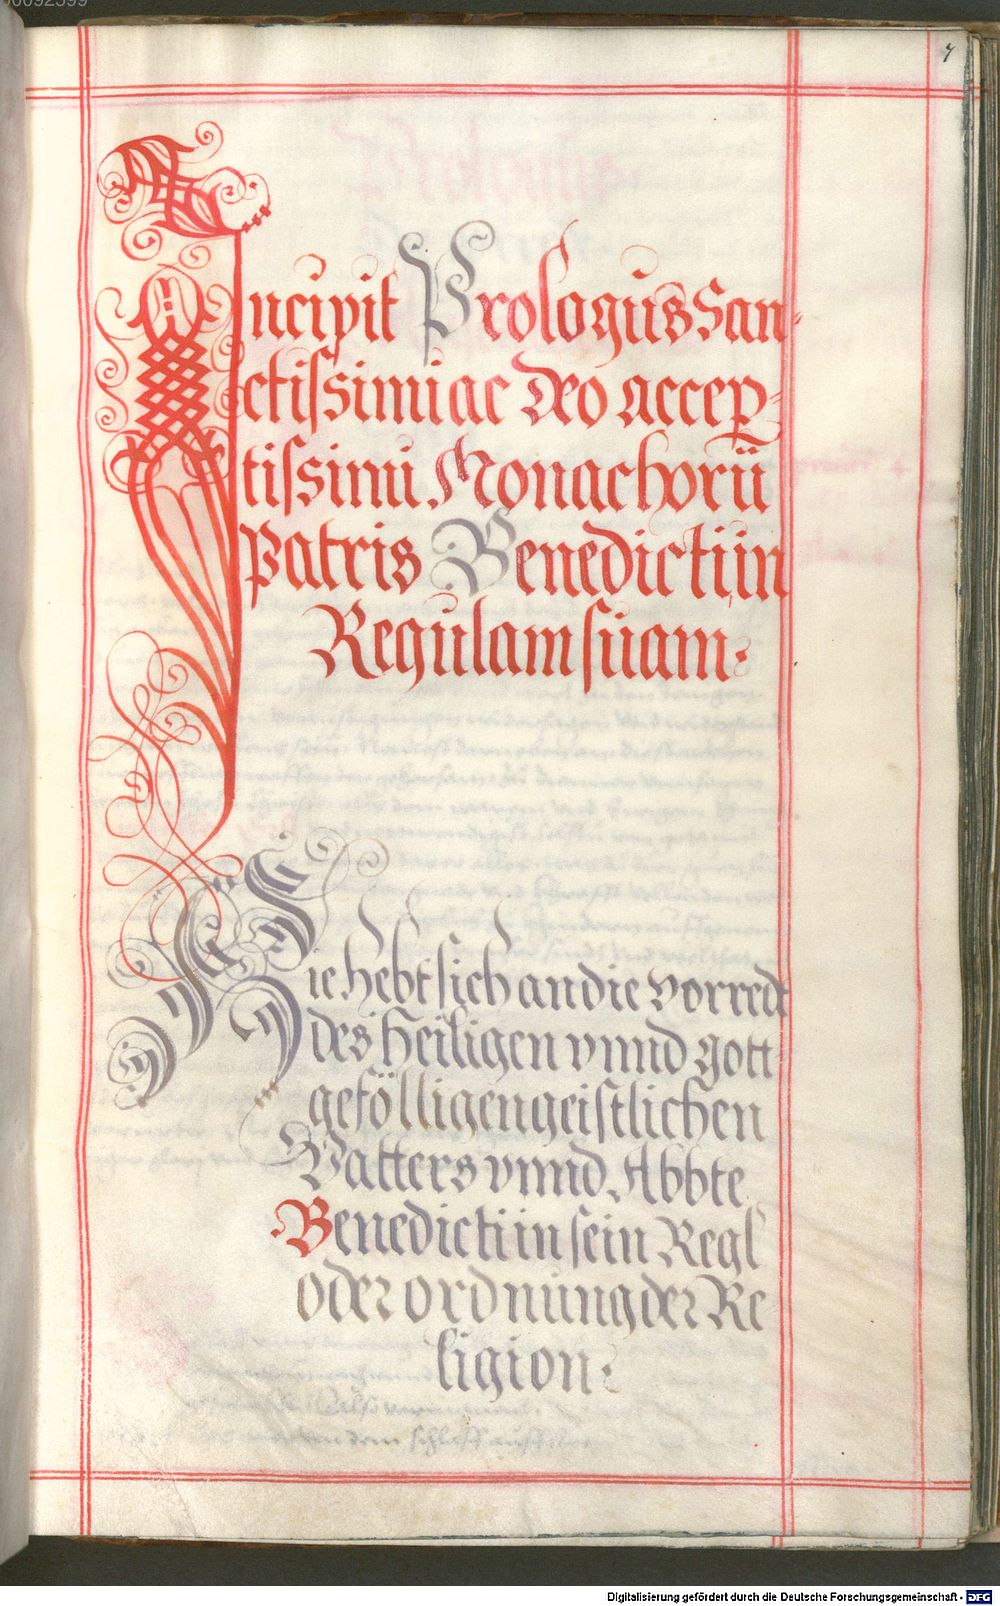 7
Incipit Prologus San-
ctissimi ac deo accep-
tissimi Monachorū
Patris Benedicti in
Regulam suam.
Hie hebt sich an die vorredt
des heiligen vnnd gott-
gefölligen geistlichen
Vatters vnnd Abbte
Benedicti in sein Regl
oder ordnung der Re
ligion.
Digitalisierung gefördert durch die Deutsche Forschungsgemeinschaft - DFG